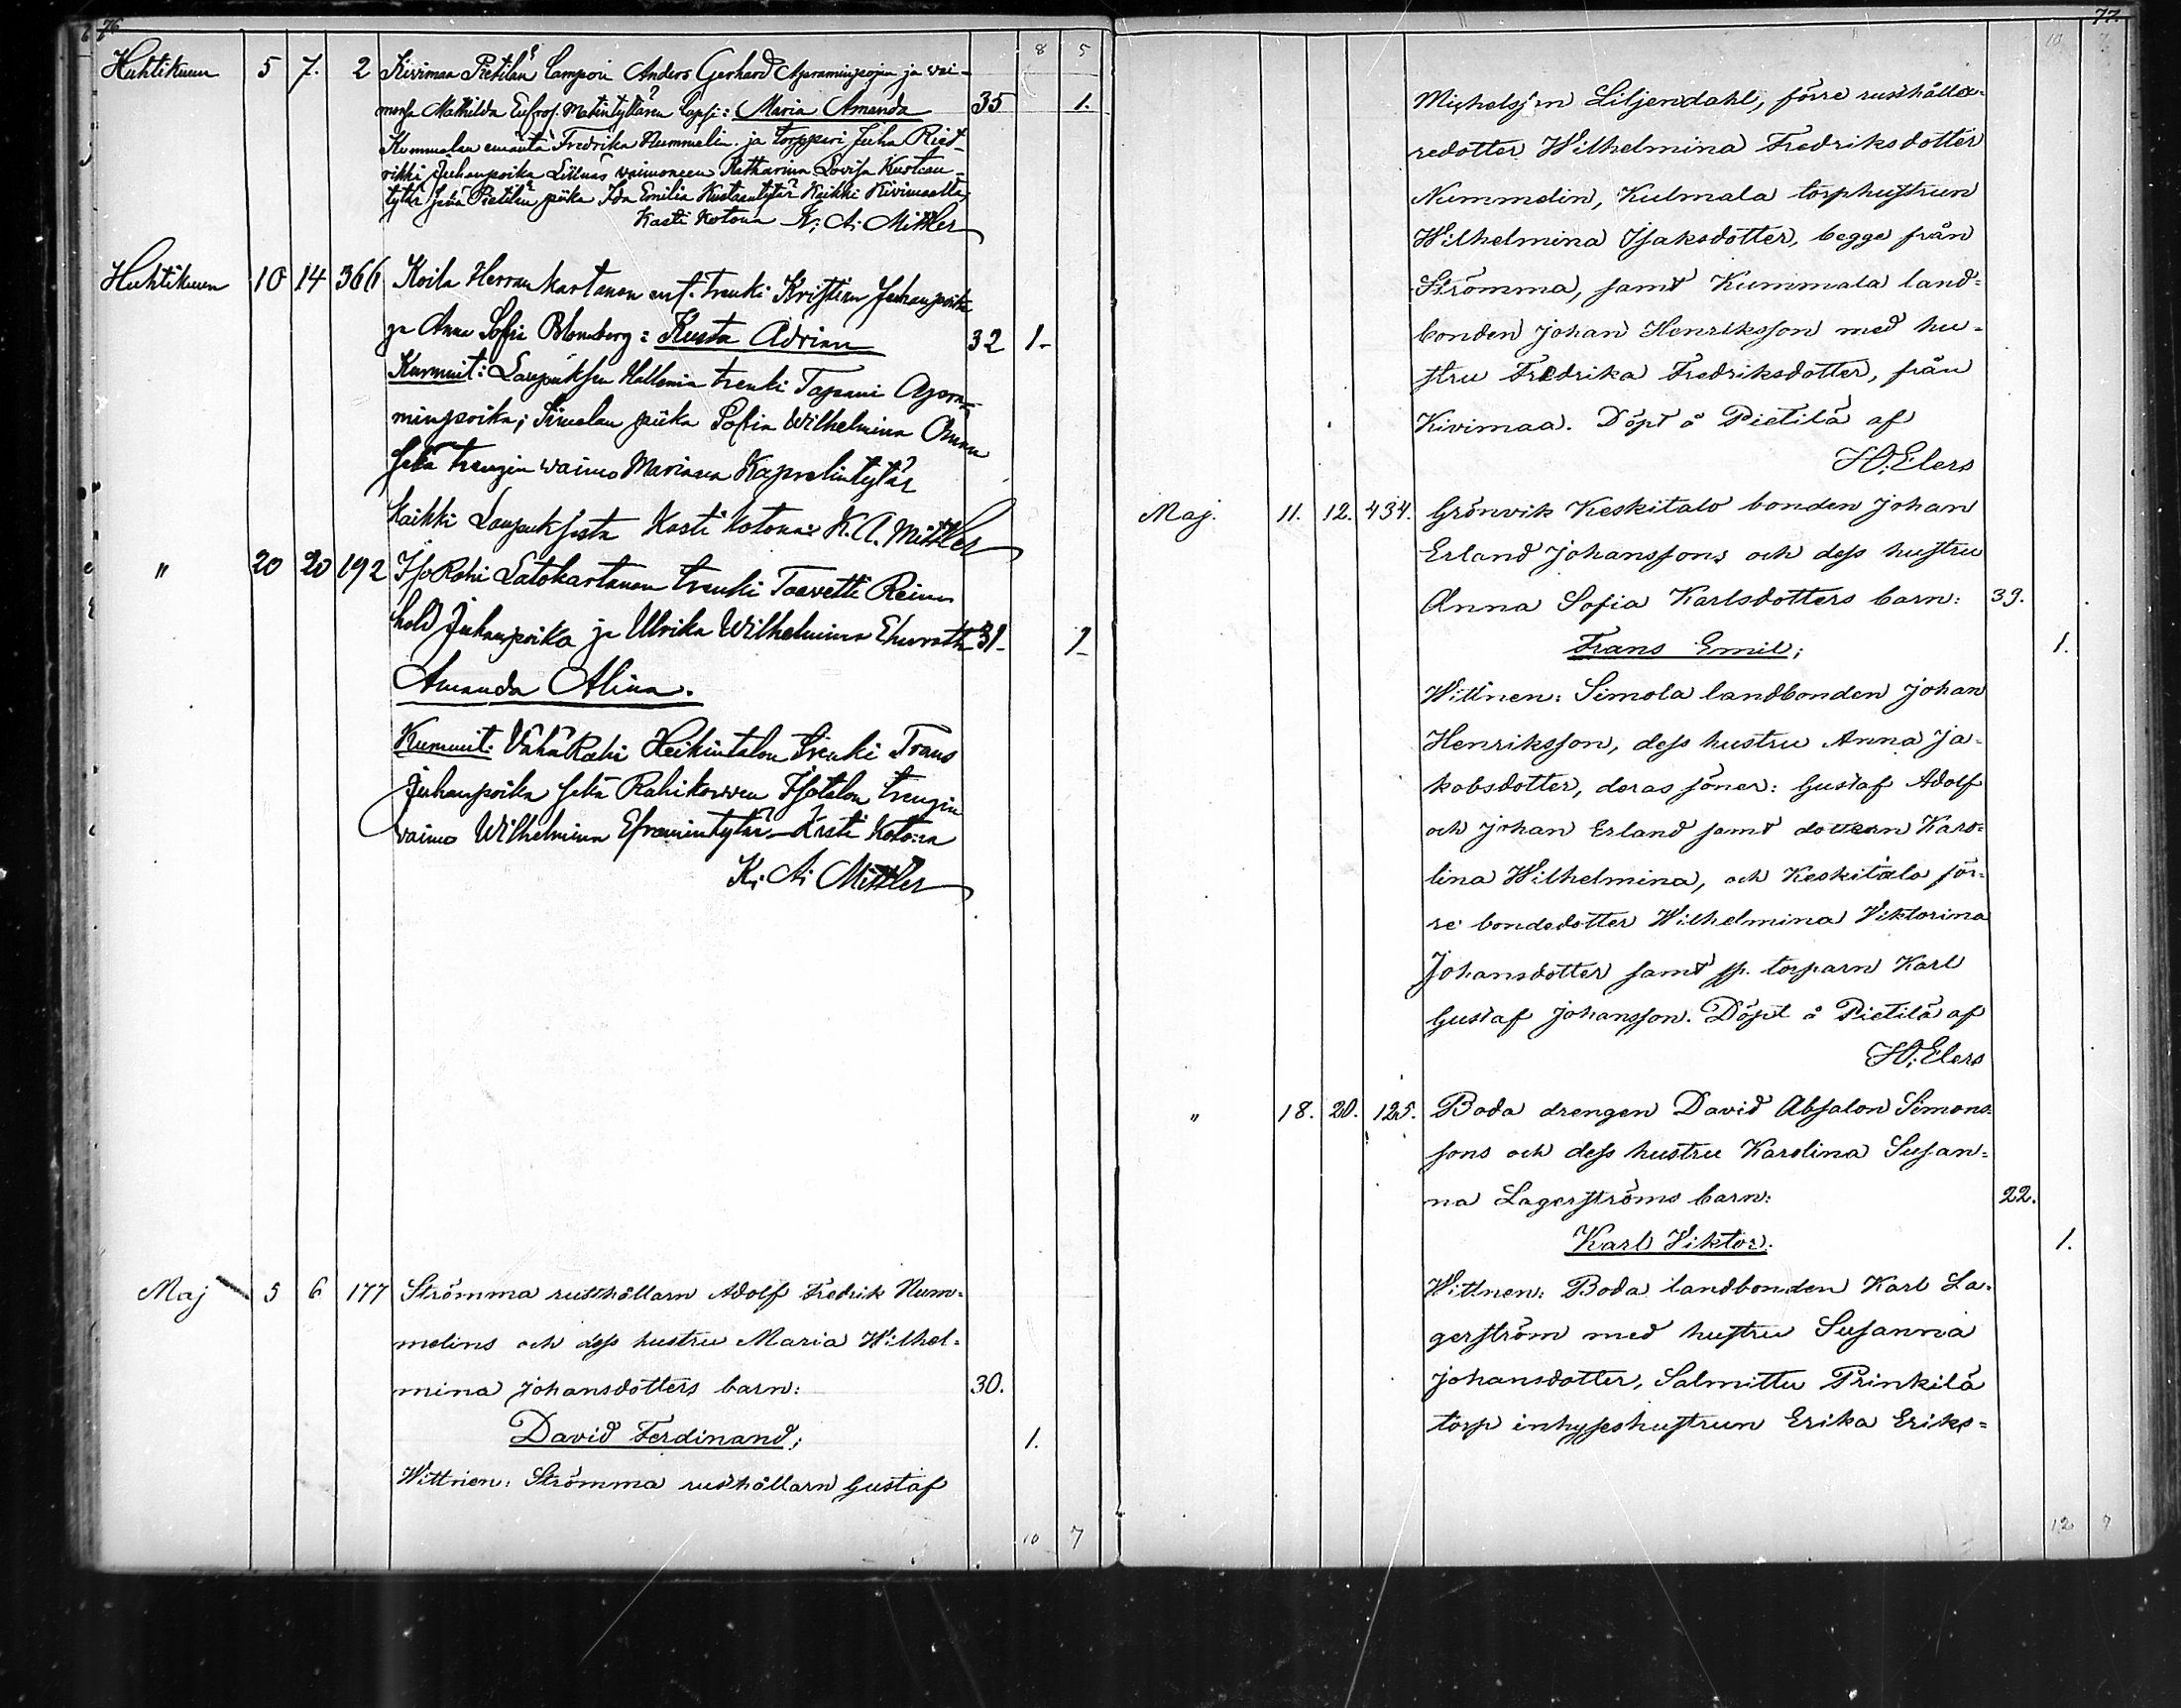 76
8 5
Huhtikuun 5 7. 2 Kivimaa Pietilän lampuri Anders Gerhard Apraminpojan ja vai-
monsa Mathilda Eufros. Matintyttären lapsi: Maria Amanda 35 1.
Kummalan emäntä Fredrika Nummelin ja torppari Juha Ried-
rikki Juhanpoika Liilnäs vaimoneen Katharina Lovisa Kustaan-
tytär sekä Pietilän piika Ida Emilia Kustaantytär Kaikki Kivimaalta
Kasti kotona K. A. Mittler
Huhtikuun 10 14 366 Koila Herrankartanon ent. trenki Kristian Juhanpoika
ja Anna Sofia Blomberg: Kusta Adrian 32 1-
Kummit: Laupuksen Hallamia trenki Tapani Apra-
minpoika; Simolan piika Sofia Wilhelmina
sekä trengin waimo Mariana Kaprelintytär
Kaikki Laupuksista Kasti kotona: K. A. Mittler
" 20 20 192 Iso Rahi Latokartanon trenki Taavetti Rein-
hold Juhanpoika ja Ulrika Wilhelmina 31- 1-
Amanda Alina.
Kummit: Vähä Rahi Heikintalon trenki Frans
Juhanpoika sekä Rahikorwen Isotalon trengin
vaimo Wilhelmina Eframintytär – Kasti kotona
K. A. Mittler
Maj 5 6 177 Strömma rusthållarn Adolf Fredrik Num-
melins och dess hustru Maria Wilhel-
mina Johansdotters barn: 30.
David Ferdinand; 1.
Wittnen: Strömma rusthållarn Gustaf
10 7
77.
10 7
Michelsson Liljendahl, förre rusthålla-
redotter Wilhelmina Fredriksdotter
Nummelin, Kulmala torphustrun
Wilhelmina Isaksdotter, begge från
Strömma, samt Kummala land-
bonden Johan Henriksson med hu-
stru Fredrika Fredriksdotter, från
Kivimaa. Döpt å Pietilä af
H. Elers
Maj. 11. 12. 434. Grönvik Keskitalo bonden Johan
Erland Johanssons och dess hustru
Anna Sofia Karlsdotters barn: 39.
Frans Emil; 1.
Wittnen: Simola landbonden Johan
Henriksson, dess hustru Anna Ja-
kobsdotter, deras söner: Gustaf Adolf
och Johan Erland samt dottern Karo-
lina Wilhelmina, och Keskitalo för-
re bondedotter Wilhelmina Viktorina
Johansdotter samt sp. torparn Karl
Gustaf Johansson. Döpt å Pietilä af
H. Elers
" 18. 20. 125. Boda drengen David Absalon Simons-
sons och dess hustru Karolina Susan-
na Lagerströms barn: 22.
Karl Viktor. 1.
Wittnen: Boda landbonden Karl La-
gerström med hustru Susanna
Johansdotter, Salmittu Prinkilä
torp inhyseshustrun Erika Eriks-
12 7